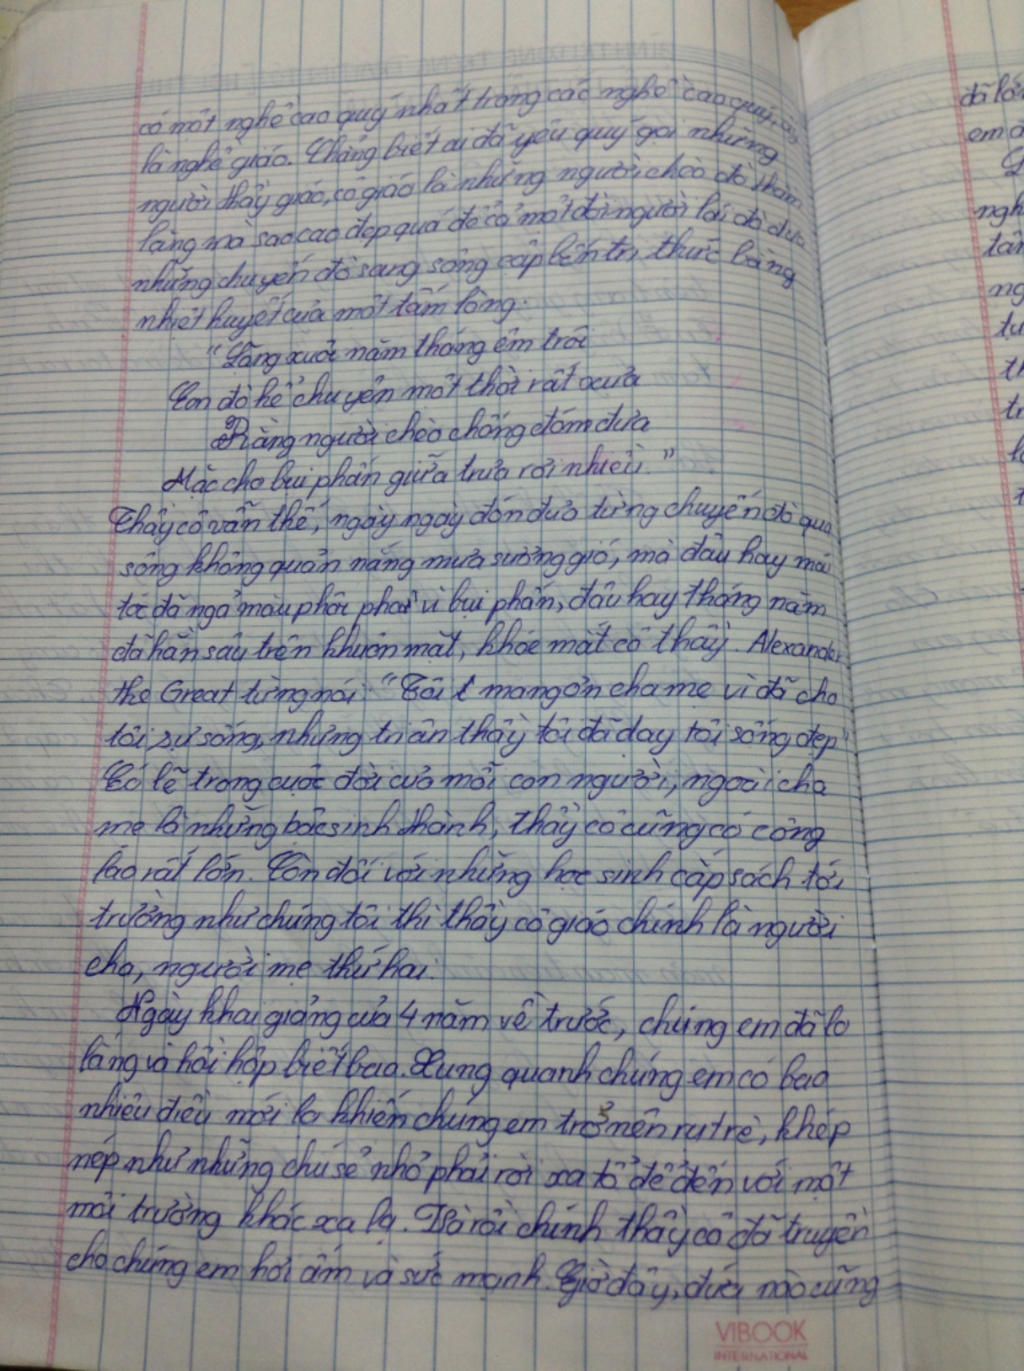 có một nghề cao quý nhất trong các nghề cao quý, đó
là nghề giáo. Chẳng biết ai đã yêu quý gọi những
người thầy giáo, cô giáo là những người chèo đò thầm
lặng mà sao cao đẹp quá để cả một đời người lái đò đưa
những chuyến đò sang sông cập bến tri thức bằng
nhiệt huyết của một tấm lòng.
"Lặng xuôi năm tháng êm trôi
Con đò kể chuyện một thời rất xưa
Rằng người chèo chống đón đưa
Mặc cho bụi phấn giữa trưa rơi nhiều."
Thầy cô vẫn thế, ngày ngày đón đưa từng chuyến đò qua
sông không quản nắng mưa sương gió, mà đâu hay mái
tóc đã ngả màu phôi pha vì bụi phấn, đâu hay tháng năm
đã hằn sâu trên khuôn mặt, khóe mắt cô thầy. Alexander
the Great từng nói "Tôi mang ơn cha mẹ vì đã cho
tôi sự sống, nhưng tri ân thầy tôi đã dạy tôi sống đẹp"
Có lẽ trong cuộc đời của mỗi con người, ngoài cha
mẹ là những bậc sinh thành, thầy cô cũng có công
lao rất lớn. Còn đối với những học sinh cắp sách tới
trường như chúng tôi thì thầy cô giáo chính là người
cha, người mẹ thứ hai.
Ngày khai giảng của 4 năm về trước, chúng em đã lo
lắng và hồi hộp biết bao. Xung quanh chúng em có bao
nhiêu điều mới lạ khiến chúng em trở nên rụt rè, khép
nép như những chú sẻ nhỏ phải rời xa tổ để đến với một
môi trường khác xa lạ. Và rồi chính thầy cô đã truyền
cho chúng em hơi ấm và sức mạnh. Giờ đây, đứa nào cũng
đã lớn
em
VIBOOK
INTERNATIONAL